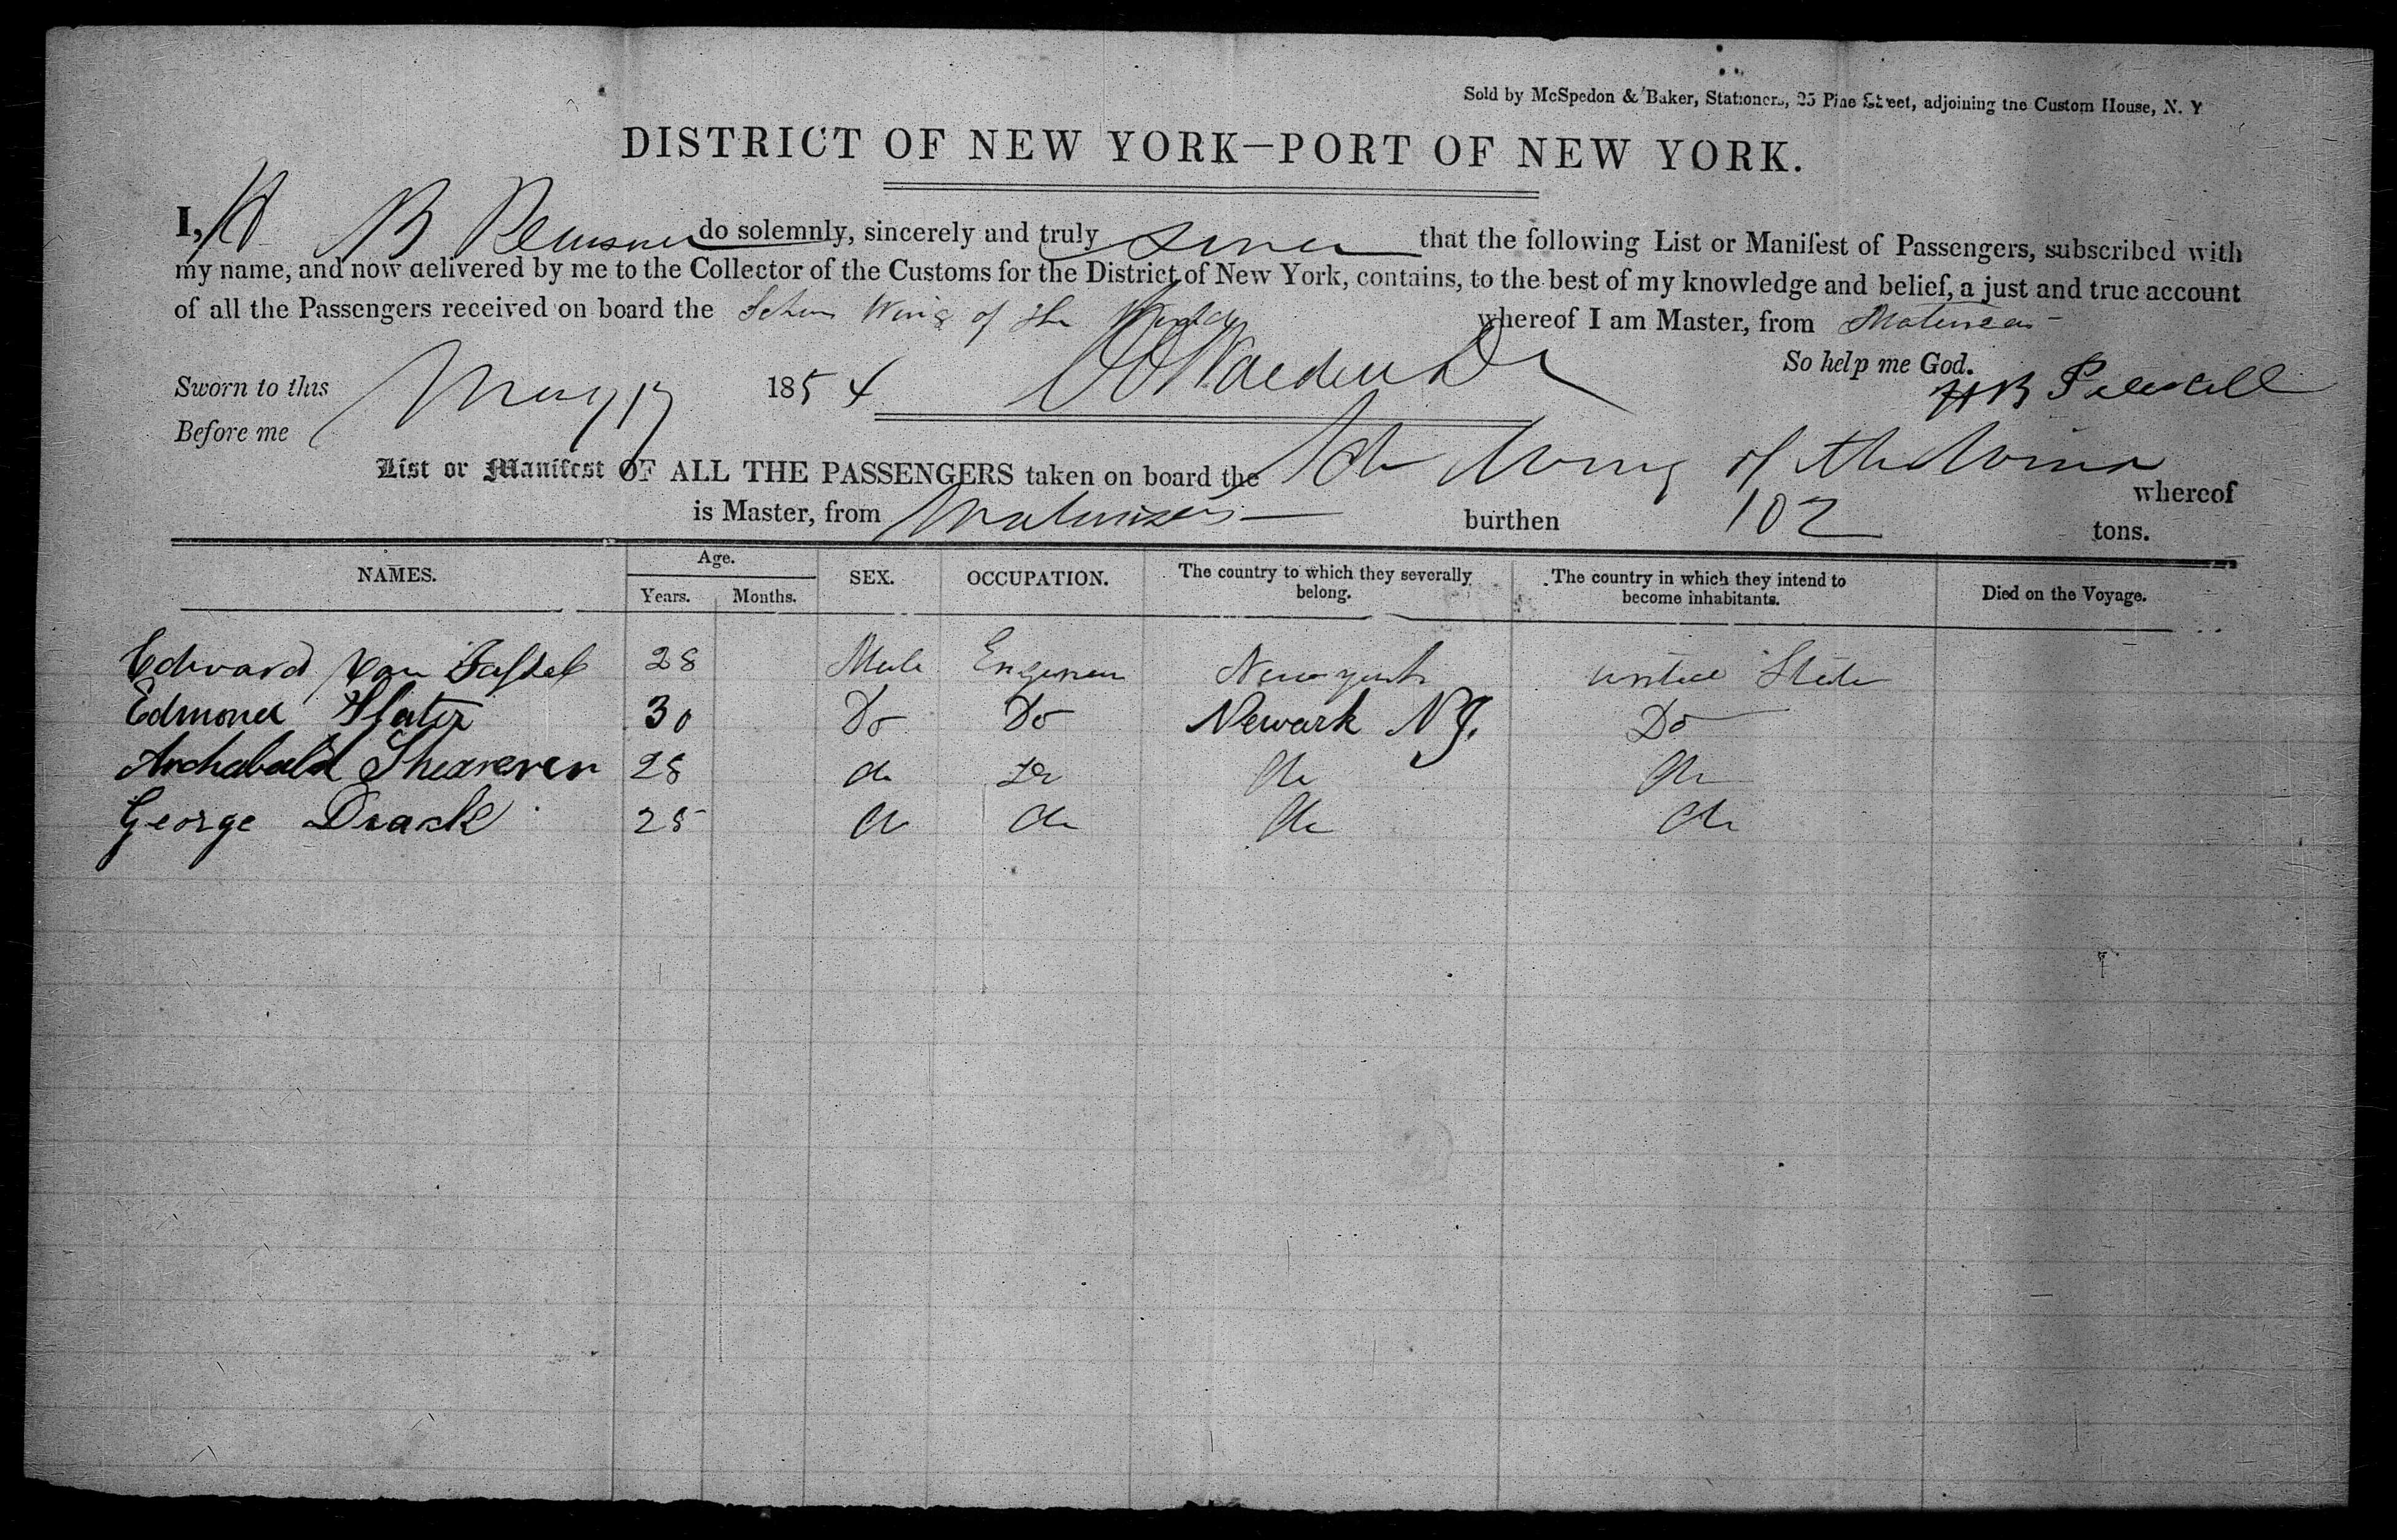 Sold by McSpedon & Baker, Stationers, 25 Pine Street, adjoining the Custom House, N. Y
DISTRICT OF NEW YORK—PORT OF NEW YORK.
I, H B do solemnly, sincerely and truly swear that the following List or Manifest of Passengers, subscribed with
my name, and now delivered by me to the Collector of the Customs for the District of New York, contains, to the best of my knowledge and belief, a just and true account
of all the Passengers received on board the Schr Wing of the Wind whereof I am Master, from Matanzas
So help me God.
Sworn to this May 17 1854
H B
Before me
List or Manifest OF ALL THE PASSENGERS taken on board the Sch Wing of the Wind whereof
is Master, from Matanzas burthen 102 tons.
NAMES. Age. Years. Months. SEX. OCCUPATION. The country to which they severally belong. The country in which they intend to become inhabitants. Died on the Voyage.
Edward Van Tassel 28 Male Engineer New york united States
Edmond Slater 30 Do Do Newark NJ. Do
Archabald Shearerer 28 do do do do
George Drack 25 do do do do